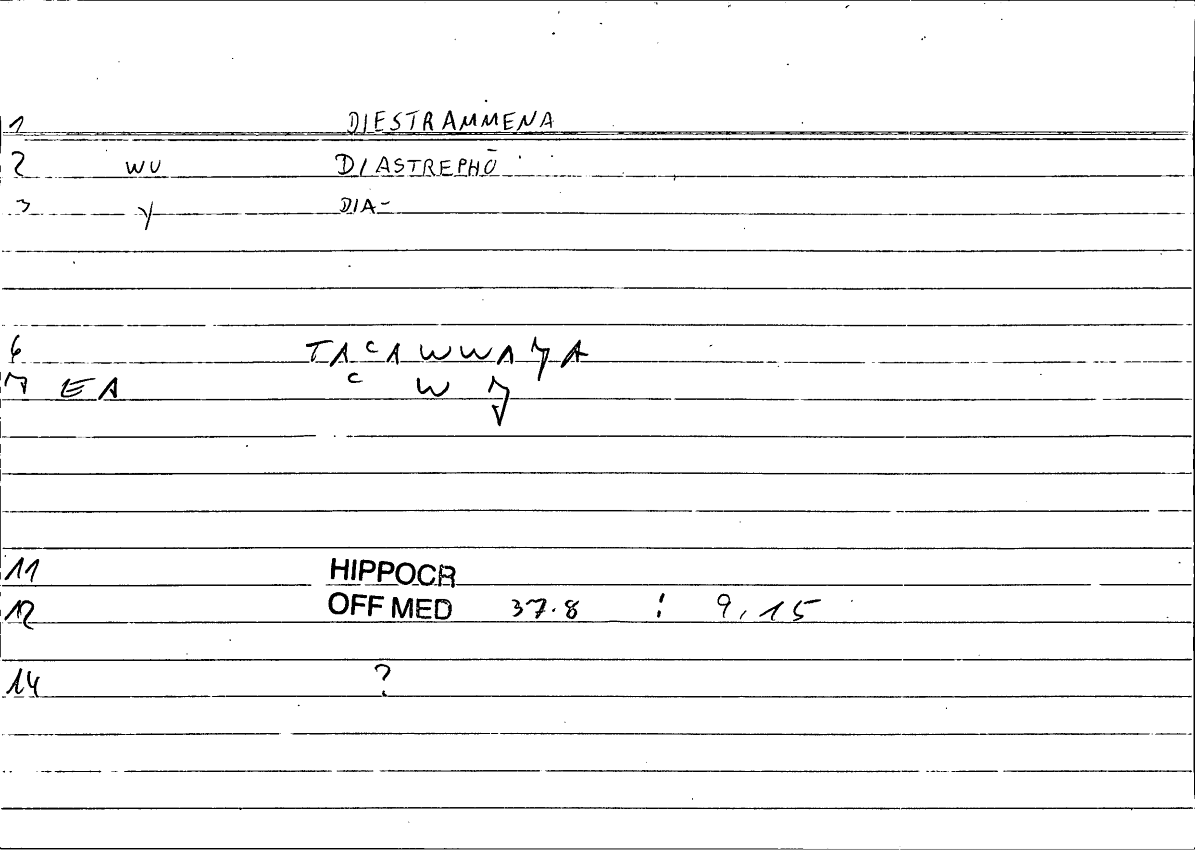 1 DIESTRAMMENA
2 WU DIASTREPHŌ
3 Y DIA-
6
7 EA
11 HIPPOCR
12 OFF MED 37.8 : 9,15
14 ?